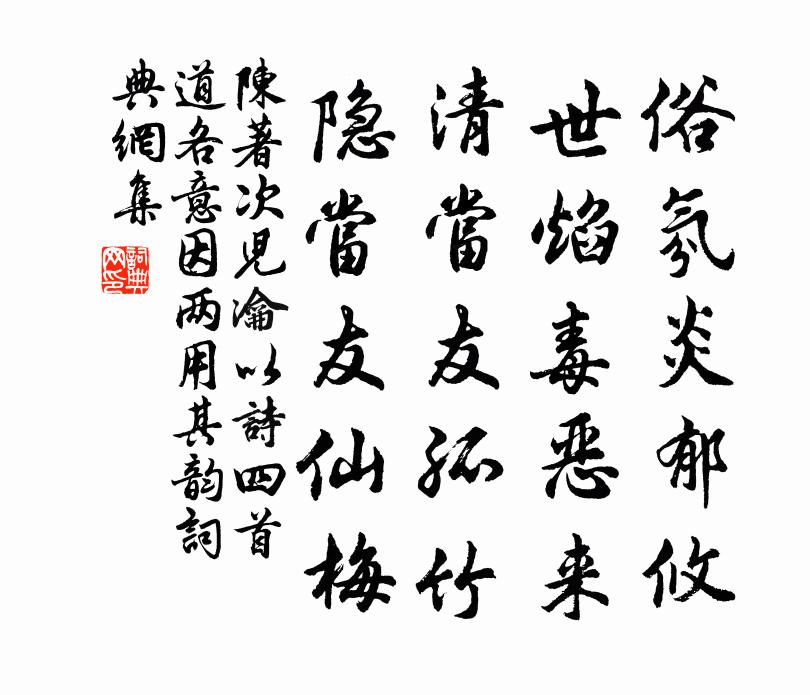 俗氛炎郁攸
世焰毒惡来
清當友孤竹
隐當友仙梅
陳著次兒瀹以詩四首
道各意因两用其韵詞
典網集
詞典網印